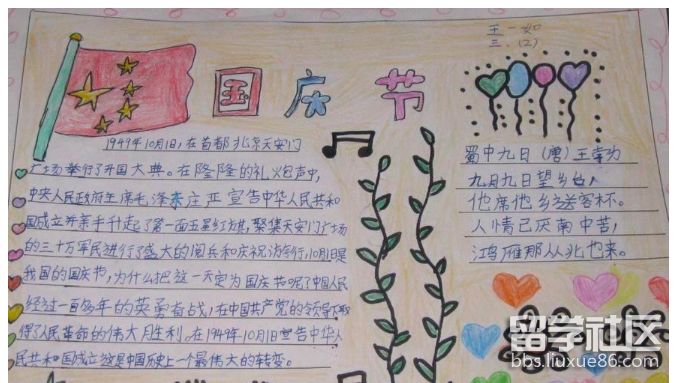 王一如
三.(2)
国庆节
1949年10月1日,在首都北京天安门
广场举行了开国大典。在隆隆的礼炮声中,
中央人民政府主席毛泽东庄严宣告中华人民共和
国成立并亲手升起了第一面五星红旗,聚集天安门广场
的三十万军民进行了盛大的阅兵和庆祝游行,10月1日是
我国的国庆节,为什么把这一天定为国庆节呢了中国人民
经过一百多年的英勇奋战,在中国共产党的领导下取
得了人民革命的伟大胜利。在1949年10月1日宣告中华人
民共和国成立这是中国历史上一个最伟大的转变。
蜀中九日(唐)王勃
九月九日望乡台,
他席他乡送客杯。
人情已厌南中苦,
鸿雁那从北地来。
留学社区
bbs.liuxue86.com